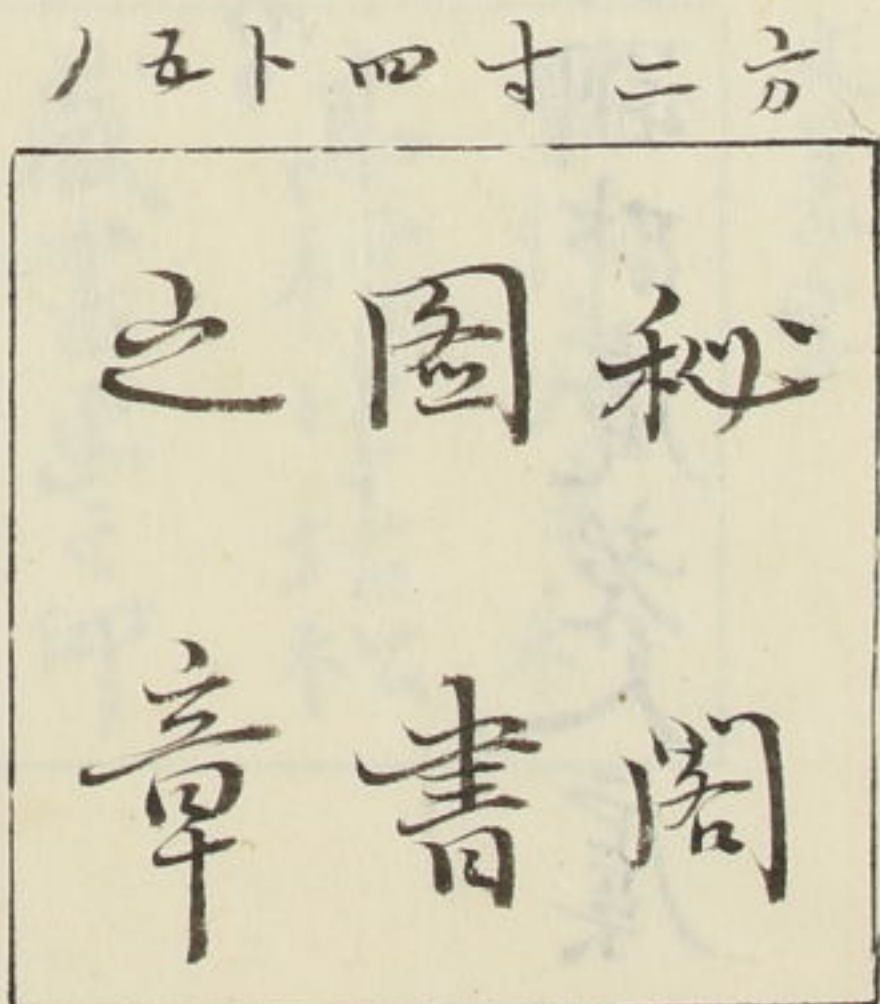 方二寸四卜五ノ
秘閣
圖書
之章